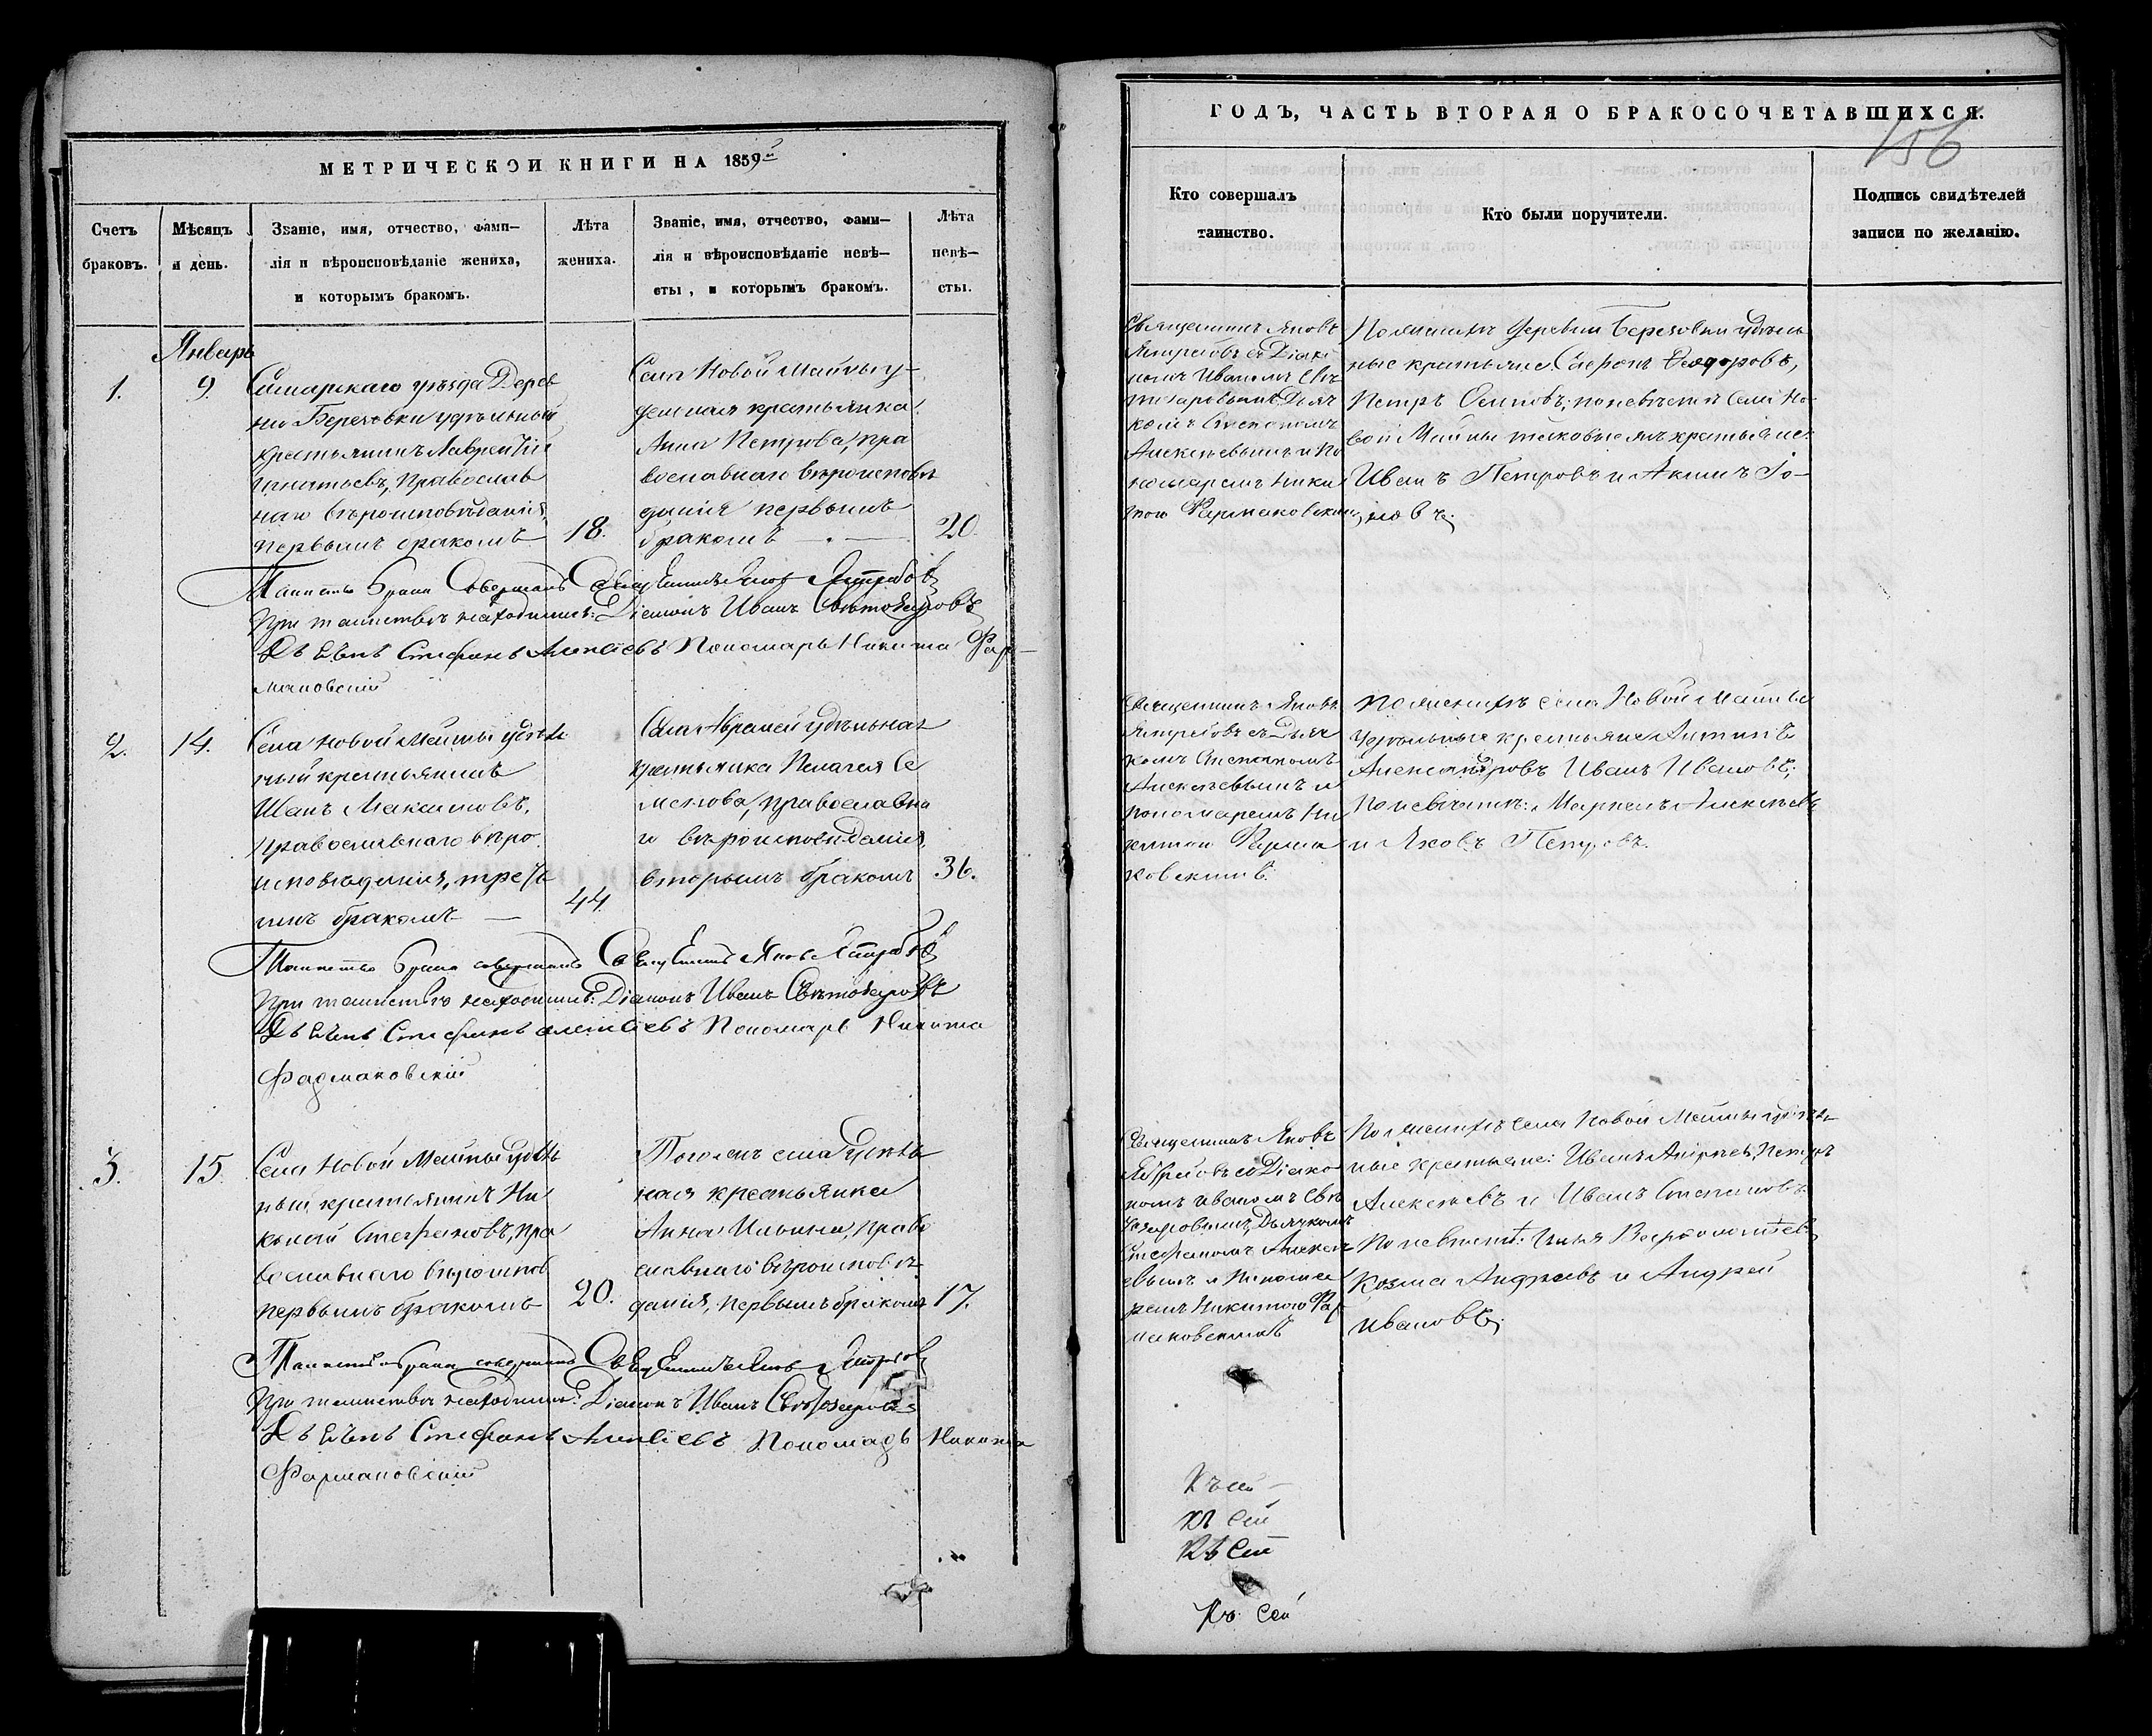 МЕТРИЧЕСКОИ КНИГИ НА 1859й
Счетъ браковъ.
Мѣсяцъ и день.
Званіе, имя, отчество, фами-
лія и вѣроисповѣданіе жениха,
и которымъ бракомъ.
Лѣта
жениха.
Званіе, имя, отчество, фами-
лія и вѣроисповѣданіе невѣ-
сты, и которымъ бракомъ.
Лѣта
невѣ-
сты.
Январь
1.
9.
Самарскаго уѣзда Дерев
ни Березовки удѣльный
крестьянинъ Лаврентій
Игнатьевъ, православ
наго вѣроисповѣданія,
первымъ бракомъ
18.
Села Новой Майны у-
дѣльная крестьянка
Анна Петрова, пра
вославнаго вѣроисповѣ
данія первымъ
бракомъ
20.
Таинство Брака Совершалъ Священникъ Яковъ Ястребовъ
При таинствѣ находились: Діаконъ Иванъ Свѣтозаровъ
Дьячекъ Стефанъ Алексѣевъ Пономарь Никита Фар-
маковскій
2.
14.
Села Новой Майны удѣль
ный крестьянинъ
Иванъ Максимовъ,
православнаго вѣро
исповѣданія, треть
имъ бракомъ
44.
удѣльная
крестьянка Пелагея Се
менова, православна
го вѣроисповѣданія,
вторымъ бракомъ
36.
Таинство Брака совершалъ Священникъ Яковъ Ястребовъ
При таинствѣ находились: Діаконъ Иванъ Свѣтозаровъ
Дьячекъ Стефанъ Алексѣевъ Пономарь Никита
Фармаковскій
3.
15.
Села Новой Майны удѣль
ный крестьянинъ Ни
колай Стефановъ, пра
вославнаго вѣроиспов
первымъ бракомъ
20.
Тогожъ села удѣль
ная крестьянка
Анна Ильина, право
славнаго вѣроисповѣ
данія, первымъ бракомъ
17.
Таинство брака совершалъ Священникъ Яковъ Ястребовъ
При таинствѣ находились: Діаконъ Иванъ Свѣтозаровъ
Дьячекъ Стефанъ Алексѣевъ Пономарь Никита
Фармаковскій
ГОДЪ, ЧАСТЬ ВТОРАЯ О БРАКОСОЧЕТАВШИХСЯ.
156
Кто совершалъ
таинство.
Кто были поручители.
Подпись свидѣтелей
записи по желанію.
Священникъ Яковъ
Ястребовъ съ Діако
номъ Иваномъ Свѣ
тозаровымъ, Дьяч
комъ Степаномъ
Алексѣевымъ и По
номаремъ Ники
тою Фармаковскимъ
По женихѣ деревни Березовки удѣль
ные крестьяне Сафронъ Ѳеодоровъ,
Петръ Осиповъ; по невѣстѣ села Но
вой Майны таковые жъ крестьяне:
Иванъ Петровъ и Акимъ Іо-
новъ.
Священникъ Яковъ
Ястребовъ съ Дьяч
комъ Степаномъ
Алексѣевымъ и
пономаремъ Ни
китою Фарма
ковскимъ.
По женихѣ села Новой Майны
удѣльные крестьяне Антипъ
Александровъ Иванъ Ивановъ;
по невѣстѣ: Маркелъ Алексѣевъ
и Яковъ Петровъ.
Священникъ Яковъ
Ястребовъ съ Діако
номъ Иваномъ Свѣ
тозаровымъ, Дьячкомъ
Стефаномъ Алексѣ
евымъ и Понома
ремъ Никитою Фар
маковскимъ
По женихѣ села Новой Майны удѣль
ные крестьяне: Иванъ Петръ
Алексѣевъ и Иванъ Степановъ
По невѣстѣ: Илья Варѳоломѣевъ
Козма Андреевъ и Андрей
Ивановъ.
Къ сей
Къ сей
Къ сей
Къ сей